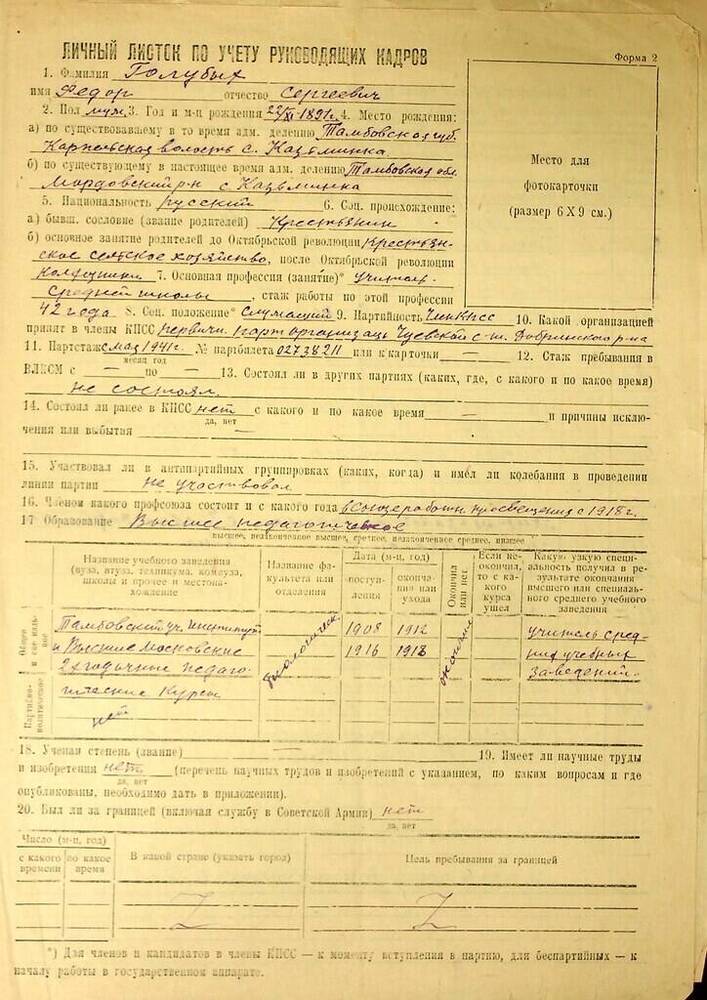 ЛИЧНЫЙ ЛИСТОК ПО УЧЕТУ РУКОВОДЯЩИХ КАДРОВ
Форма 2
1. Фамилия Голубых
имя Федор отчество Сергеевич
2. Пол муж. 3. Год и м-ц рождения 22/XI-1891г. 4. Место рождения:
а) по существовавшему в то время адм. делению Тамбовская губ.
волость с. Казьминка
б) по существующему в настоящее время адм. делению Тамбовская обл.
Мордовский р-н с Казьминка
5. Национальность русский 6. Соц. происхождение:
а) бывш. сословие (звание родителей) Крестьянин
б) основное занятие родителей до Октябрьской революции Крестьян-
ское сельское хозяйство, после Октябрьской революции
Колхозники 7. Основная профессия (занятие)* учитель
средней школы, стаж работы по этой профессии
42 года 8. Соц. положение* Служащий 9. Партийность Член КПСС 10. Какой организацией
принят в члены КПСС первичн. парторганизац Чуевской с-ш. Добринского р-на
11. Партстаж с мая 1941г. № партбилета 02738211 или к/карточки — 12. Стаж пребывания в
месяц год
ВЛКСМ с — по — 13. Состоял ли в других партиях (каких, где, с какого и по какое время)
не состоял
14. Состоял ли ранее в КПСС нет с какого и по какое время — и причины исклю-
да, нет
чения или выбытия —
15. Участвовал ли в антипартийных группировках (каких, когда) и имел ли колебания в проведении
линии партии не участвовал
16. Членом какого профсоюза состоит и с какого года в Союзе работн. просвещения с 1918 г.
17 Образование Высшее педагогическое
высшее, незаконченное высшее, среднее, незаконченное среднее, низшее
Место для
фотокарточки
(размер 6X9 см.)
Название учебного заведения
(вуза, втуза, техникума, комвуза,
школы и прочее и местона-
хождение
Название фа-
культета или
отделения
Дата (м-ц, год)
поступ-
ления
оконча-
ния или
ухода
Окончил
или нет
Если не-
окончил,
то с ка-
кого
курса
ушел
Какую узкую специ-
альность получил в ре-
зультате окончания
высшего или специаль-
ного среднего учебного
заведения
Партийно-
политическое
Тамбовский уч. институт 1908 1912 учитель сред-
и Высшие Московские 1916 1918 них учебных
2х годичные педаго- заведений.
гические Курсы
нет
окончил
18. Ученая степень (звание) — 19. Имеет ли научные труды
и изобретения нет (перечень научных трудов и изобретений с указанием, по каким вопросам и где
да, нет
опубликованы, необходимо дать в приложении).
20. Был ли за границей (включая службу в Советской Армии) нет
да, нет
Число (м-ц, год)
с какого
времени
по какое
время
В какой стране (указать город)
Цель пребывания за границей
Z Z
*) Для членов и кандидатов в члены КПСС — к моменту вступления в партию, для беспартийных — к
началу работы в государственном аппарате.